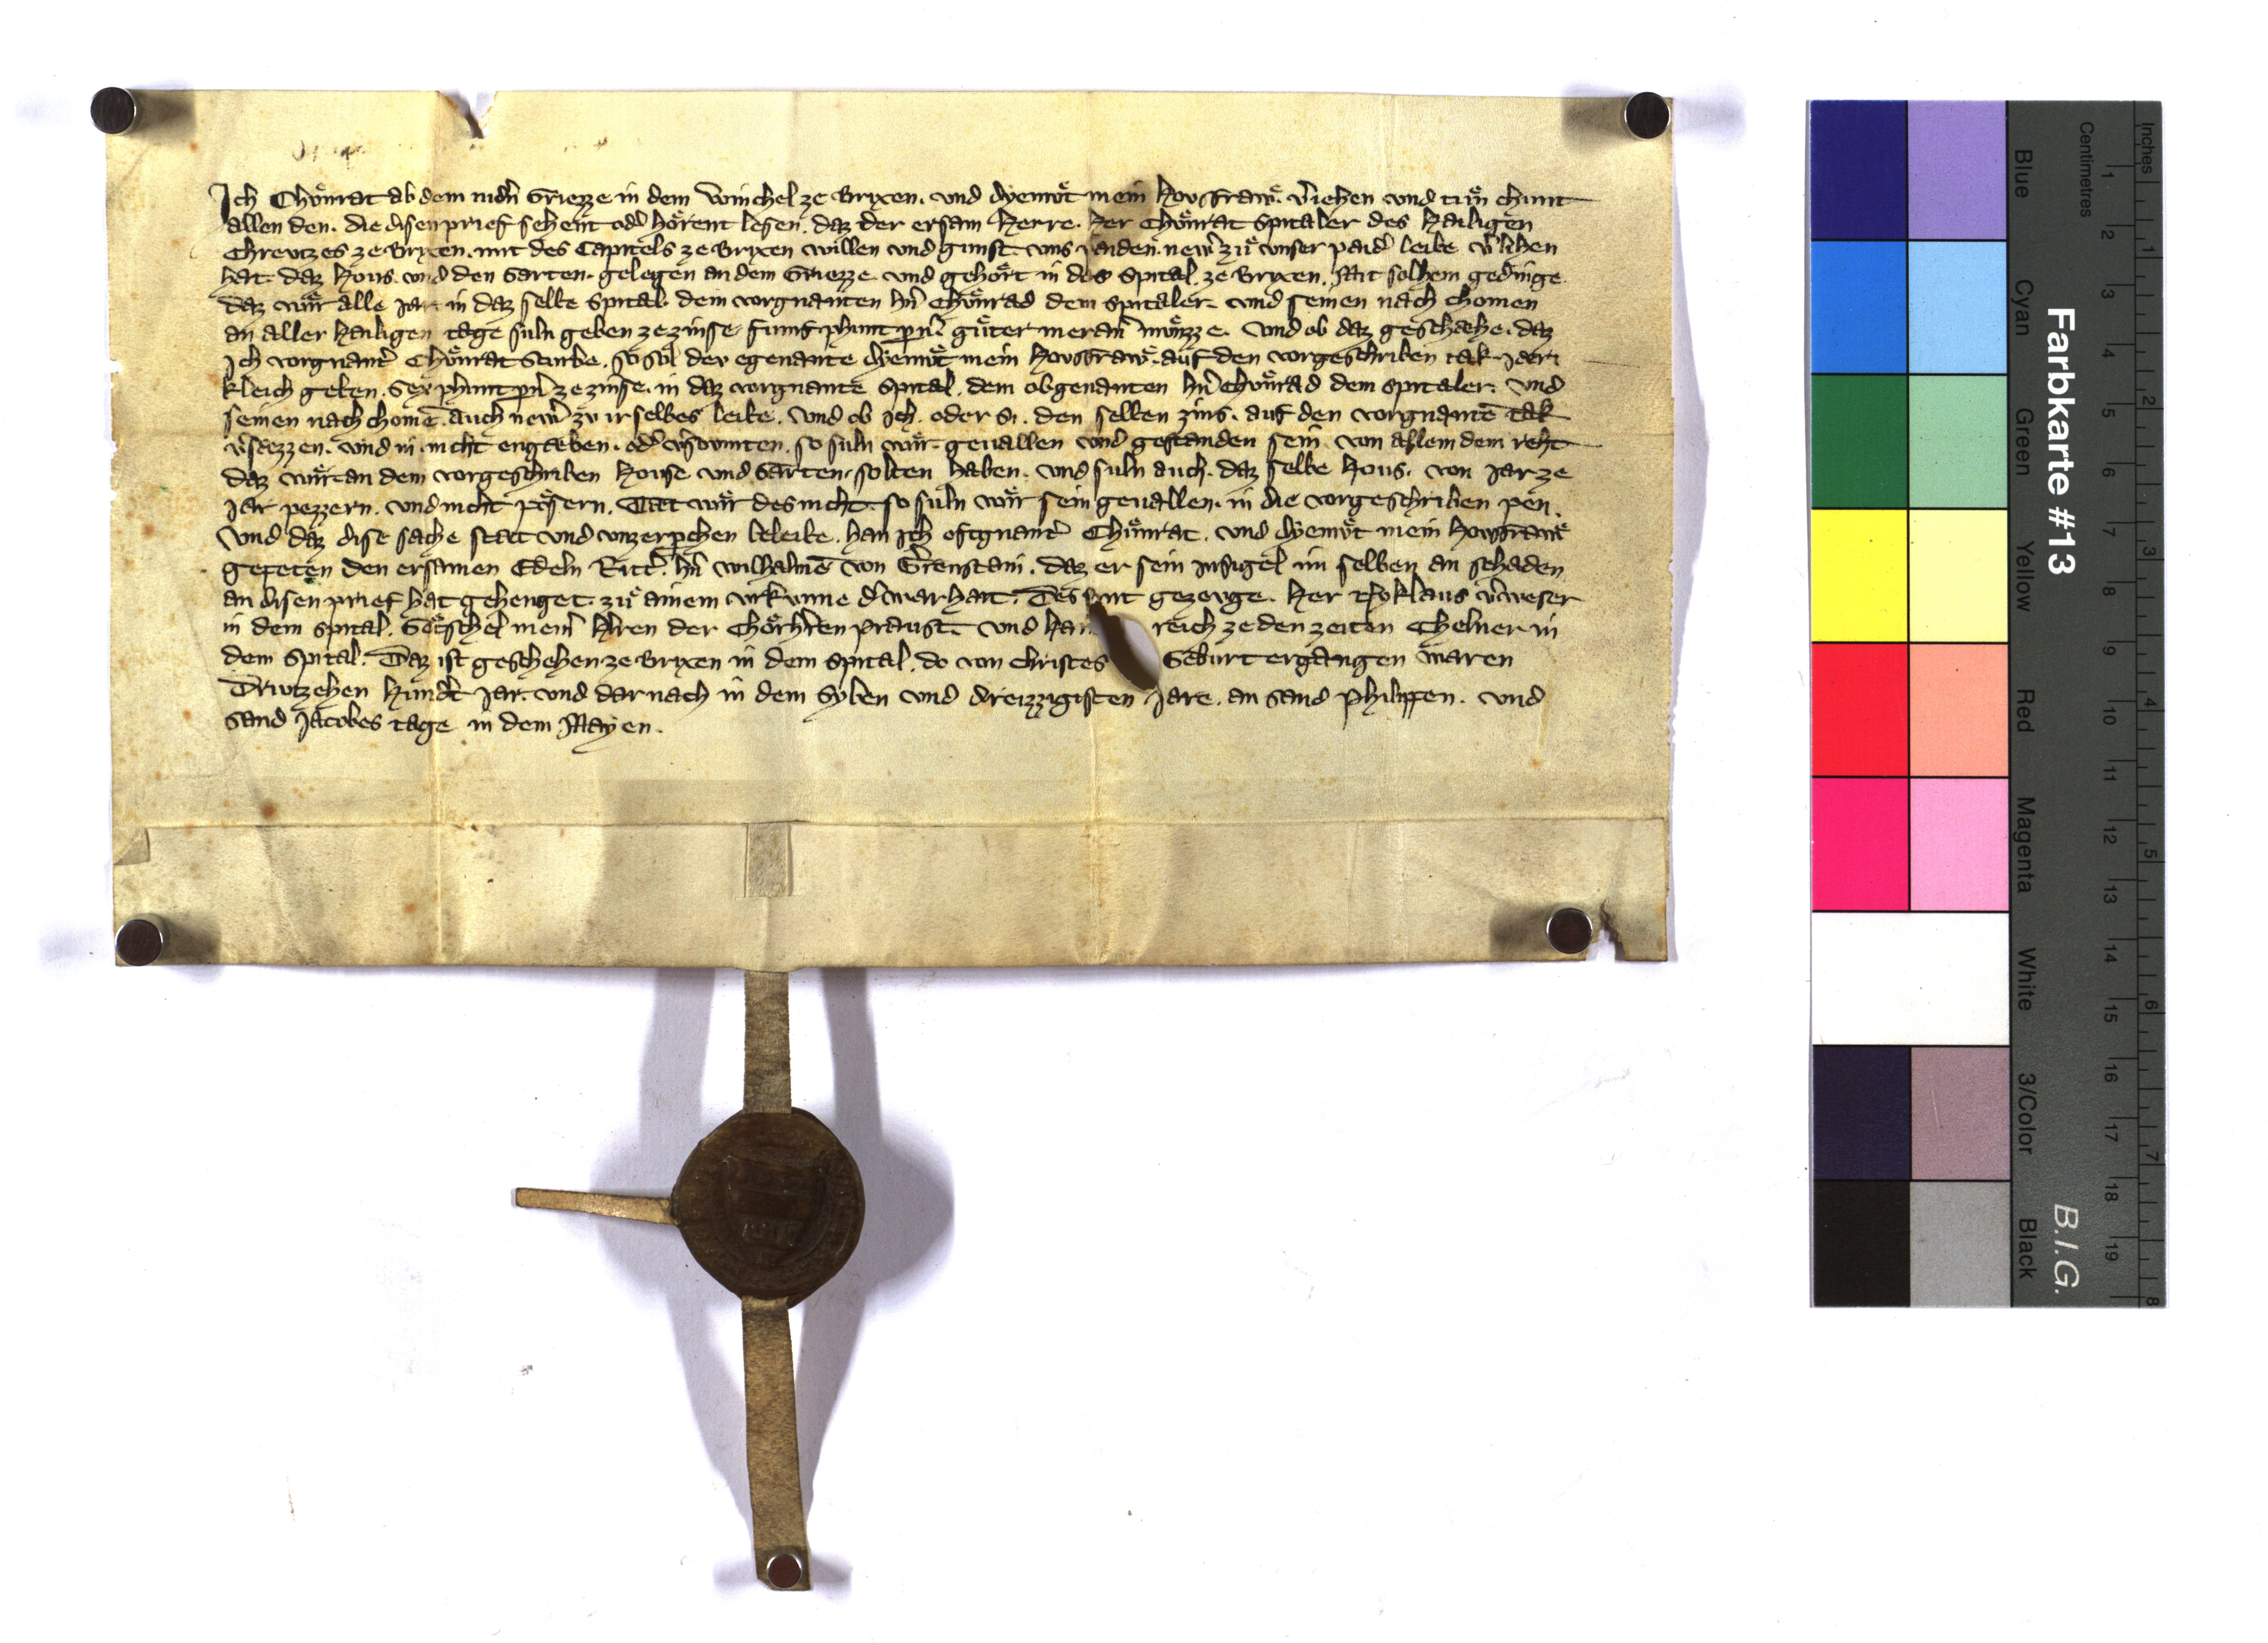 Ich Chuͦnrat ab dem nidn̄ Griezze in dem Winchel ze Brixen. vnd Dyemuͦt mein Hovsfrawͤ. v̄iehen vnd tuͦn chunt
allen den. die disen prief sehent od̄ hoͤrent lesen. daz der ersam Herre. Her Chuͦnrat Spitaler des Hailigen
Chreutzes ze Brixen. mit des Capitels ze Brixen willen vnd gunst. vns paiden. new̄ zuͦ vnser paid̄ leibe v̄lihen
hat. daz Hous. vnd den Garten. gelegen an dem Griezze. vnd gehoͤrt in daz Spital. ze Brixen. Mit solhem gedinge.
daz wiͤr alle jar in daz selbe Spital. dem vorgnanten hn̄ Chuͦnrad dem Spitaler. vnd seinen nach chomen
an aller Hailigen tage suln geben ze zinse. fumf phunt pn̄. guͤter meran̄ muͤnzze. Vnd ob daz geschaehe. daz
Ich vorgnant̄ Chuͦnrat sturbe. so sol dev egenante Dyemuͦt mein Hovsfrawͤ. auf den vorgeschriben tak jaer
kleich geben. Sex phunt pn̄ ze zinse. in daz vorgnante Spital. dem obgenanten hn̄ Chuͦnrad dem Spitaler. vnd
seinen nach chomē. auch new̄ zv ir selbes leibe. Vnd ob ich. oder si. den selben zins. auf den vorgnantē tak
v̄saezzen. vnd in nicht engaeben. od̄ v̄sovmten. so suln wiͤr geuallen vnd gestanden sein. von allem dem reht
daz wiͤr an dem vorgeschriben House vnd Garten. solten haben. vnd suln auch. daz selbe Hous. von jar ze
jar pezzern. vnd nicht poͤsern. Taet wiͤr des nicht. so suln wiͤr sein geuallen. in die vorgeschriben pen.
Vnd daz dise sache staet vnd vnzerprchen beleibe. han ich oftgnant̄ Chuͦnrat. vnd Dyemuͦt mein Hovsfrawͤ
gepeten den ersamen Edeln Ritt̄. hn̄ Wilhalmē von Ver̄enstain. daz er sein Insigel im selben an schaden
an disen prief hat gehenget. zuͦ ainem vrkvnne d̄ warhait. Des sint gezevge. Her Nyklaus v̄weser
in dem Spital. Goͤtschel mein̄ H̄ren der Chorh̄ren praust. vnd Hai reich ze den zeiten Chelner in
dem Spital. Daz ist geschehen ze Brixen in dem Spital. do von Christes Geburt ergangen waren
Driutzehen Hund̄t jar. vnd dar nach in dem Syben vnd dreizzigisten jare. an sand Philippen. vnd
sand Jacobes tage in dem Mayen.
Farbkarte #13
B.I.G.
Inches
Centimetres
1 2 3 4 5 6 7 8 9 10 11 12 13 14 15 16 17 18 19
1 2 3 4 5 6 7 8
Blue
Cyan
Green
Yellow
Red
Magenta
White
3/Color
Black